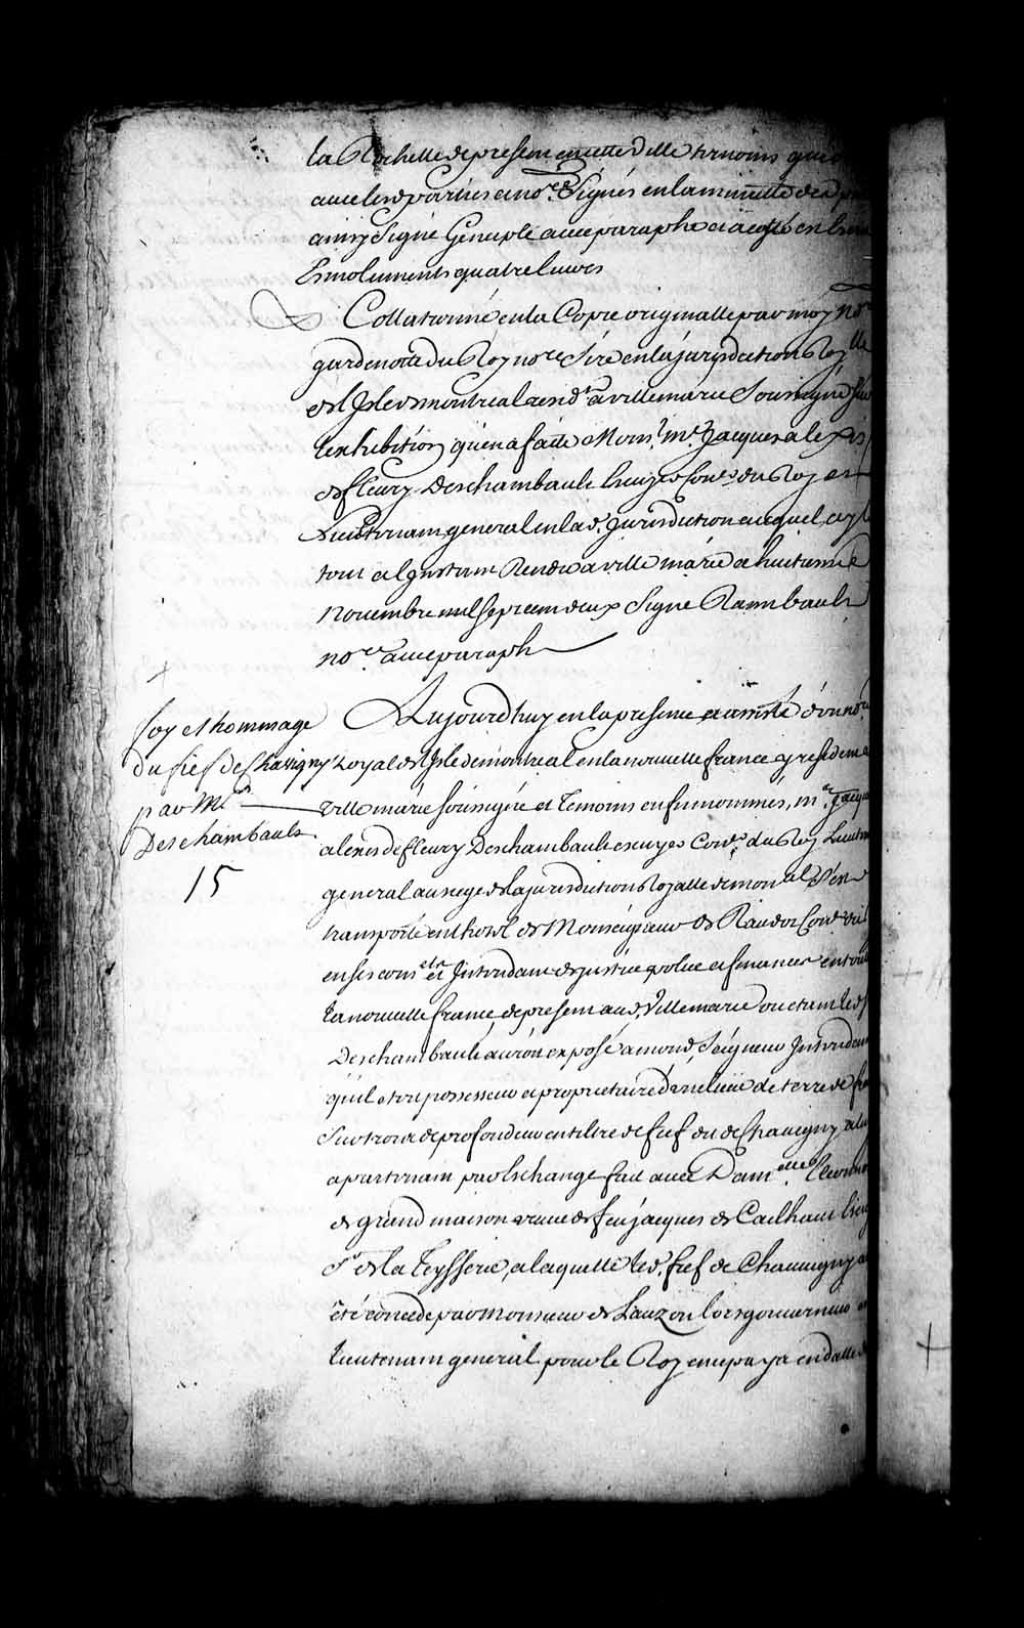 la Rochelle de present en cette ville temoins qui
avec lesd parties et no.re Signés en la minutte des
ainsy Signé Genuple avec paraphe et a costé est
Esmoluments quatre livres
Collationné en la Copie originalle par moy No.re
gardenotte du Roy no.re Sire en la jurisdiction Roy.lle
de l'Isle de montreal resid.t a villemarie Soussigné Sur
lexhibition qu'en a faitte Mons.r m.e Jacques alexis
de fleury Deschambault Escuyer Con.er du Roy et
Lieutenant general en lad. Jurisdiction auquel
tout a l Instant Rendu a ville marie ce huitieme
Novembre mil sept cent deux Signé Raimbault
no.re avec paraph
foy et hommage
du fief de Chavigny
par M.r
Deschambault
15
Aujourdhuy en la presence du no.re
Royal de l'Isle de montreal en la nouvelle france y resident a
ville marie soussigné et temoins enfin nommés, m.e Jacques
alexis de fleury Deschambault escuyer Con.er du Roy Lieuten
general au siege de la jurisdiction Royalle de mon.al s'est
transporté en lhotel de Monseigneur de Raudot Con.er du
en ses cons.els et Intendant de justice police et finances en toute
la nouvelle france, de present aud. Villemarie ou etant led. s.
Deschambault auroit exposé a mond. Seigneur Intendant
quil est possesseur et proprietaire d'une lieüe de terre de fro
Sur trois de profondeur en tiltre de fief dit de Chavigny a luy
apartenant par Eschange fait avec Dam.elle Eleonore
de grand maison veuve de feu jacques de Cailhaut Escuy
S.r de la Teysserie, a laquelle led. fief de Chauvigny a
été concedé par monsieur de Lauzon lors gouverneur et
lieutenant general pour le Roy en ce paya en datte d